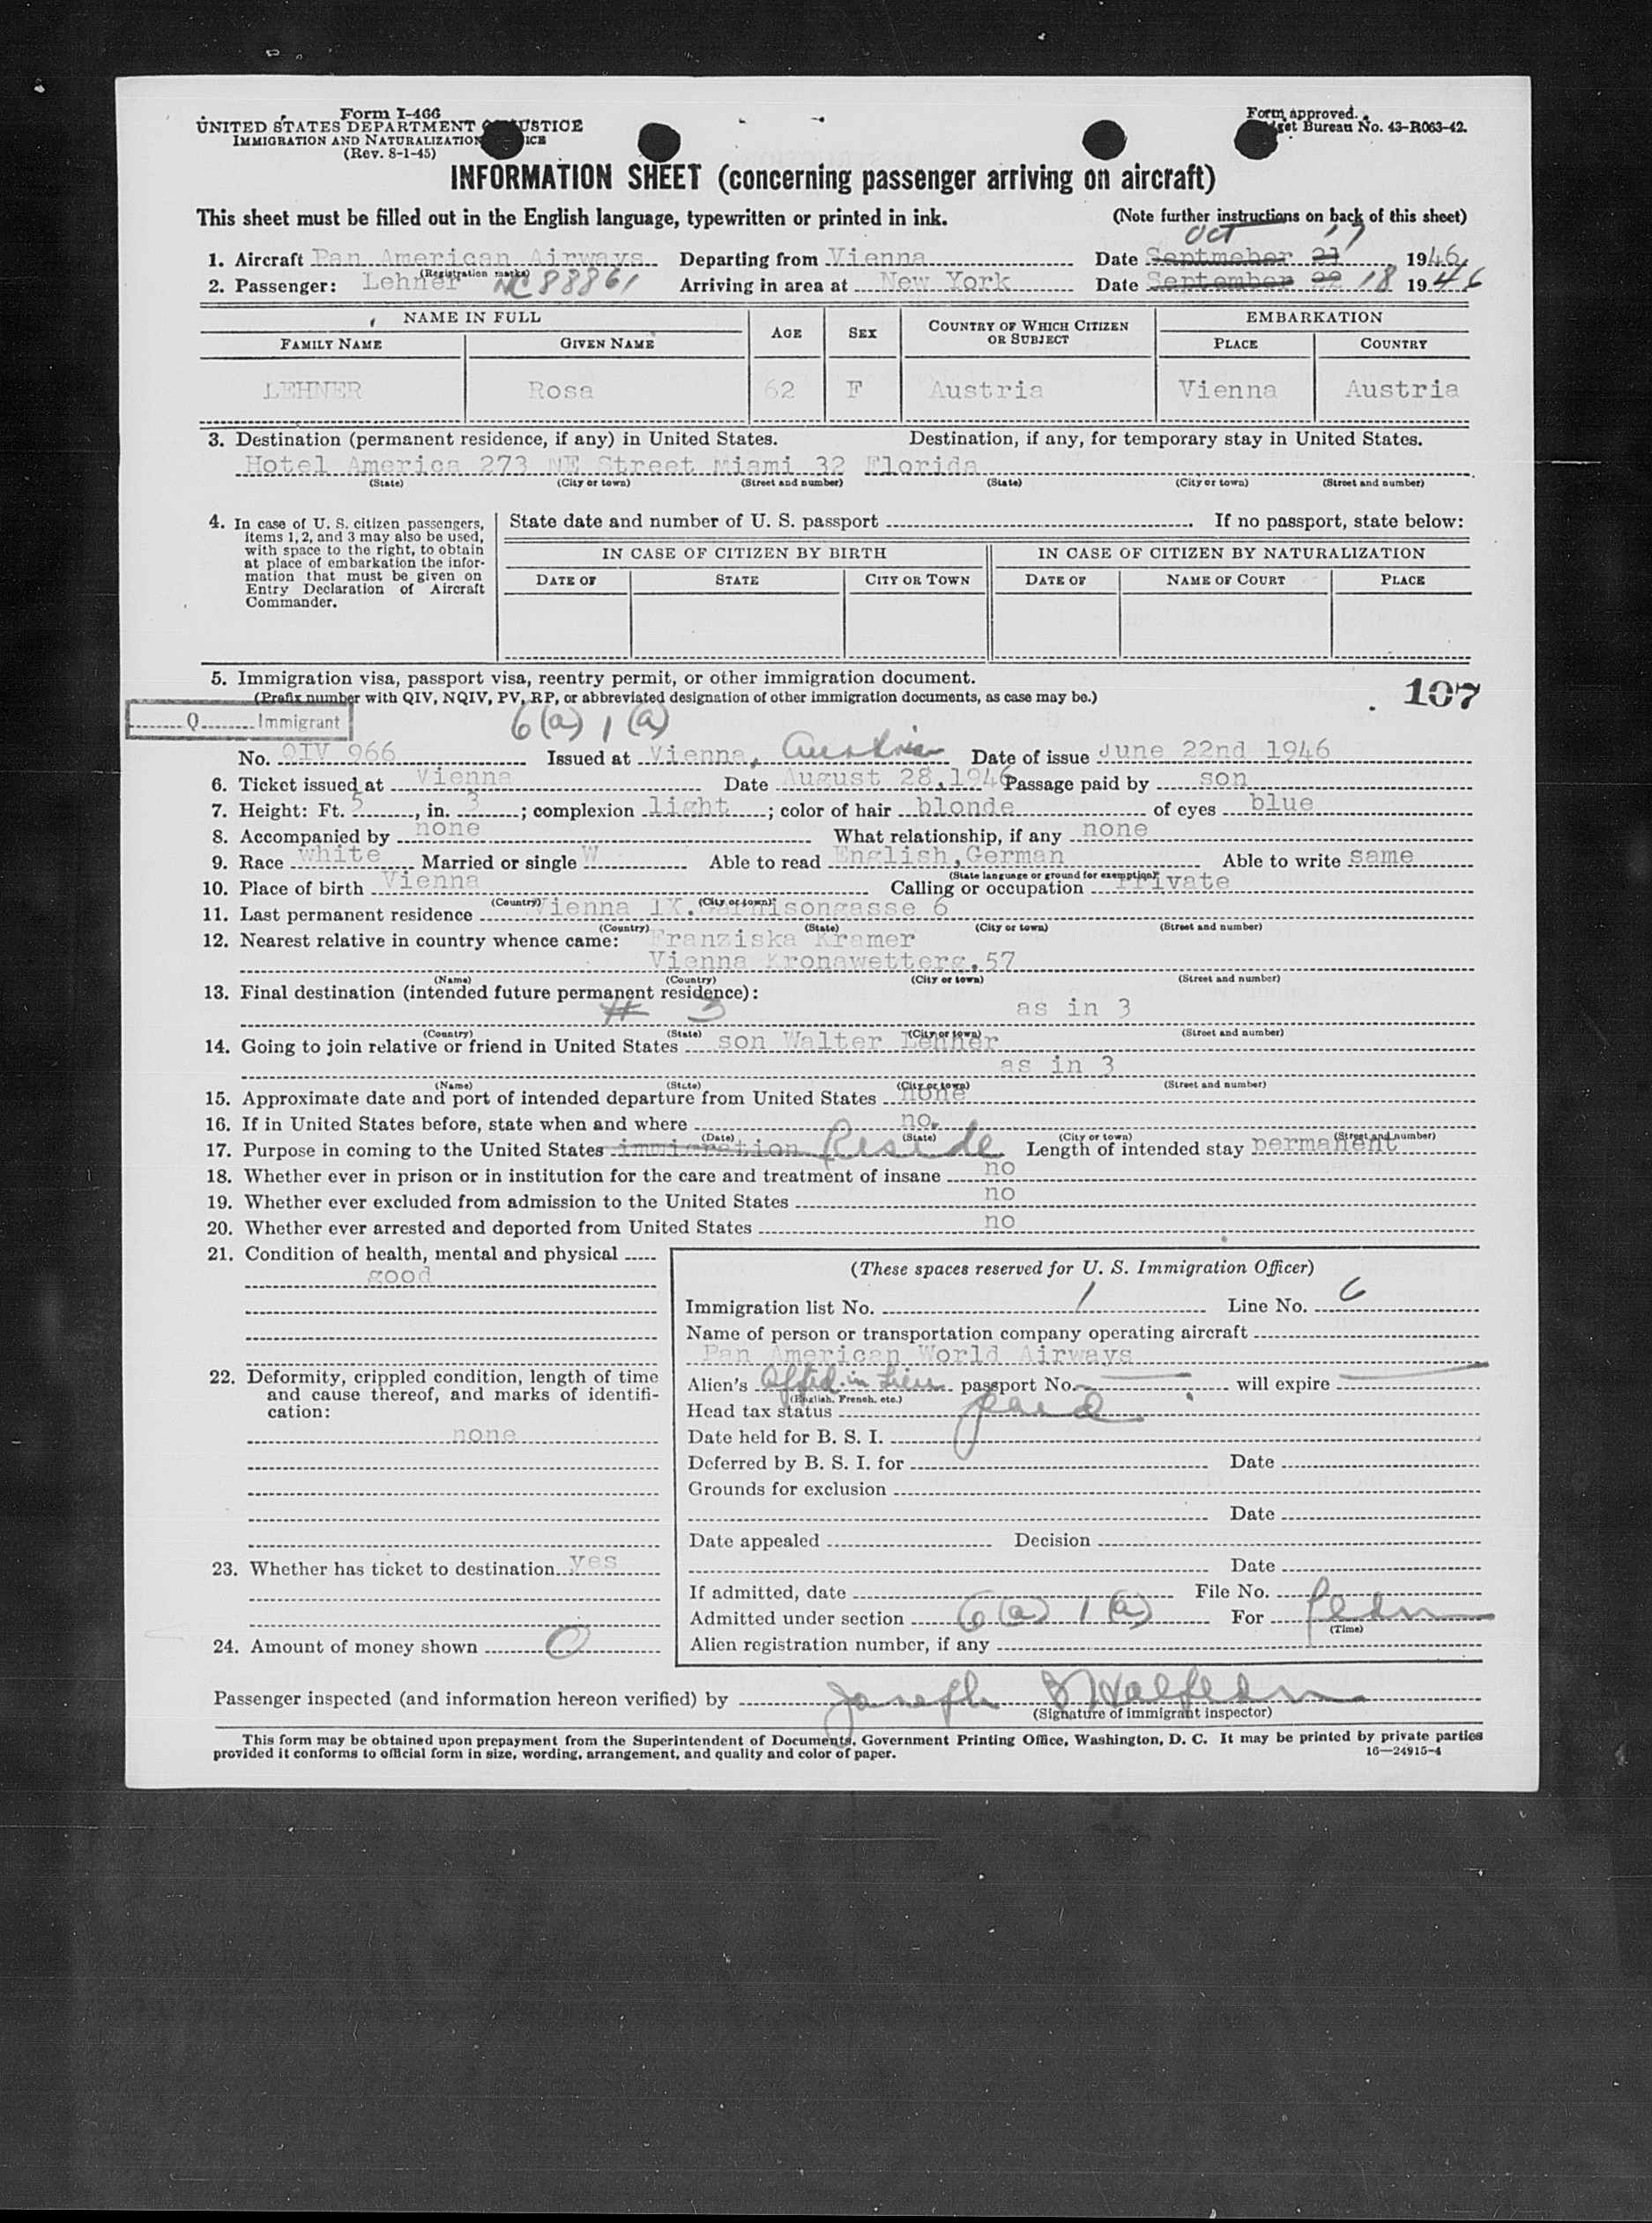 Form I-466
UNITED STATES DEPARTMENT OF JUSTICE
IMMIGRATION AND NATURALIZATION SERVICE
(Rev. 8-1-45)
Form approved.
Budget Bureau No. 43-R063-42.
INFORMATION SHEET (concerning passenger arriving on aircraft)
This sheet must be filled out in the English language, typewritten or printed in ink. (Note further instructions on back of this sheet)
Oct 17
1. Aircraft Pan American Airways Departing from Vienna Date Septmeber 21 1946
(Registration marks)
2. Passenger: Lehner NC 88861 Arriving in area at New York Date September 22 18 1946
NAME IN FULL AGE SEX COUNTRY OF WHICH CITIZEN OR SUBJECT EMBARKATION
FAMILY NAME GIVEN NAME PLACE COUNTRY
LEHNER Rosa 62 F Austria Vienna Austria
3. Destination (permanent residence, if any) in United States. Destination, if any, for temporary stay in United States.
Hotel America 273 NE Street Miami 32 Florida
(State) (City or town) (Street and number) (State) (City or town) (Street and number)
4. In case of U. S. citizen passengers, items 1, 2, and 3 may also be used, with space to the right, to obtain at place of embarkation the information that must be given on Entry Declaration of Aircraft Commander.
State date and number of U. S. passport If no passport, state below:
IN CASE OF CITIZEN BY BIRTH IN CASE OF CITIZEN BY NATURALIZATION
DATE OF STATE CITY OR TOWN DATE OF NAME OF COURT PLACE
5. Immigration visa, passport visa, reentry permit, or other immigration document.
(Prefix number with QIV, NQIV, PV, RP, or abbreviated designation of other immigration documents, as case may be.)
107
Q Immigrant 6(a) 1 (a)
No. QIV 966 Issued at Vienna, Austria Date of issue June 22nd 1946
6. Ticket issued at Vienna Date August 28,1946 Passage paid by son
7. Height: Ft. 5, in. 3; complexion light; color of hair blonde of eyes blue
8. Accompanied by none What relationship, if any none
9. Race white Married or single W Able to read English,German Able to write same
(State language or ground for exemption)
10. Place of birth Vienna Calling or occupation Private
(Country) (City or town)
11. Last permanent residence Vienna IX.Garnisongasse 6
(Country) (State) (City or town) (Street and number)
12. Nearest relative in country whence came: Franziska Kramer
Vienna Kronawetterg.57
(Name) (Country) (City or town) (Street and number)
13. Final destination (intended future permanent residence):
# 3 as in 3
(Country) (State) (City or town) (Street and number)
14. Going to join relative or friend in United States son Walter Lehner
as in 3
(Name) (State) (City or town) (Street and number)
15. Approximate date and port of intended departure from United States none
16. If in United States before, state when and where no.
(Date) (State) (City or town) (Street and number)
17. Purpose in coming to the United States immigration Reside Length of intended stay permanent
18. Whether ever in prison or in institution for the care and treatment of insane no
19. Whether ever excluded from admission to the United States no
20. Whether ever arrested and deported from United States no
21. Condition of health, mental and physical
good
22. Deformity, crippled condition, length of time and cause thereof, and marks of identification:
none
23. Whether has ticket to destination yes
24. Amount of money shown 0
(These spaces reserved for U. S. Immigration Officer)
Immigration list No. 1 Line No. 6
Name of person or transportation company operating aircraft
Pan American World Airways
Alien's Affid. in Lieu passport No. will expire
(English, French, etc.)
Head tax status paid
Date held for B. S. I.
Deferred by B. S. I. for Date
Grounds for exclusion
Date
Date appealed Decision
Date
If admitted, date File No.
Admitted under section 6(a) 1 (a) For Perm
(Time)
Alien registration number, if any
Passenger inspected (and information hereon verified) by Joseph
(Signature of immigrant inspector)
This form may be obtained upon prepayment from the Superintendent of Documents, Government Printing Office, Washington, D. C. It may be printed by private parties
provided it conforms to official form in size, wording, arrangement, and quality and color of paper. 16—24915-4